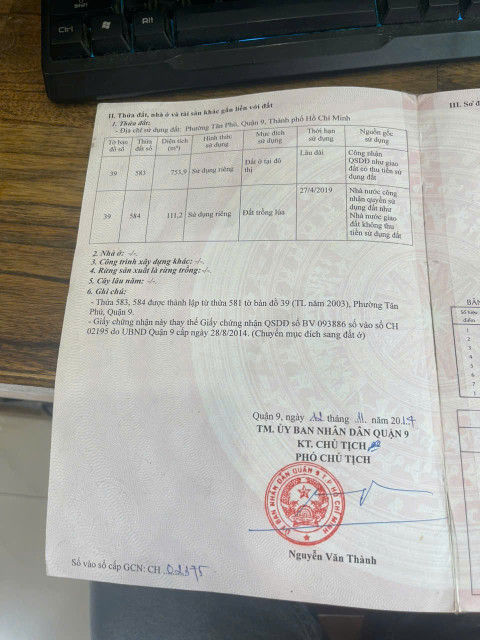 Ctrl
Alt
II. Thửa đất, nhà ở và tài sản khác gắn liền với đất
1. Thửa đất:
- Địa chỉ sử dụng đất: Phường Tân Phú, Quận 9, Thành phố Hồ Chí Minh
Tờ bản đồ số | Thửa đất số | Diện tích (m²) | Hình thức sử dụng | Mục đích sử dụng | Thời hạn sử dụng | Nguồn gốc sử dụng
39 | 583 | 753,9 | Sử dụng riêng | Đất ở tại đô thị | Lâu dài | Công nhận QSDĐ như giao đất có thu tiền sử dụng đất
39 | 584 | 111,2 | Sử dụng riêng | Đất trồng lúa | 27/4/2019 | Nhà nước công nhận quyền sử dụng đất như Nhà nước giao đất không thu tiền sử dụng đất
2. Nhà ở: -/-.
3. Công trình xây dựng khác: -/-.
4. Rừng sản xuất là rừng trồng: -/-.
5. Cây lâu năm: -/-.
6. Ghi chú:
- Thửa 583, 584 được thành lập từ thửa 581 tờ bản đồ 39 (TL năm 2003), Phường Tân
Phú, Quận 9.
- Giấy chứng nhận này thay thế Giấy chứng nhận QSDĐ số BV 093886 số vào sổ CH
02195 do UBND Quận 9 cấp ngày 28/8/2014. (Chuyển mục đích sang đất ở)
Quận 9, ngày 12 tháng 11 năm 201
TM. ỦY BAN NHÂN DÂN QUẬN 9
KT. CHỦ TỊCH
PHÓ CHỦ TỊCH
ỦY BAN NHÂN DÂN QUẬN 9 T.P HỒ CHÍ MINH
Nguyễn Văn Thành
Số vào sổ cấp GCN: CH 02395
III. Sơ đ
BẢN
Số hiệu
điểm
1
2
3
4
5
6
7
1